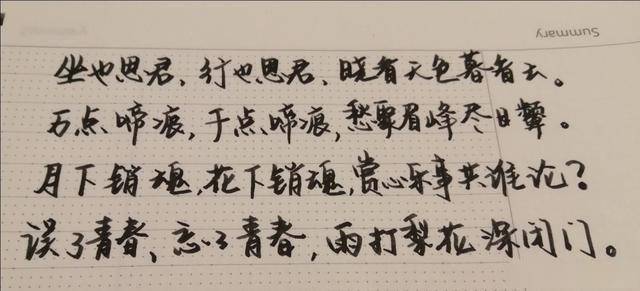 Summary
坐也思君，行也思君，晓看天色暮看云。
万点啼痕，千点啼痕，愁聚眉峰尽日颦。
月下销魂，花下销魂，赏心乐事共谁论？
误了青春，忘了青春，雨打梨花深闭门。